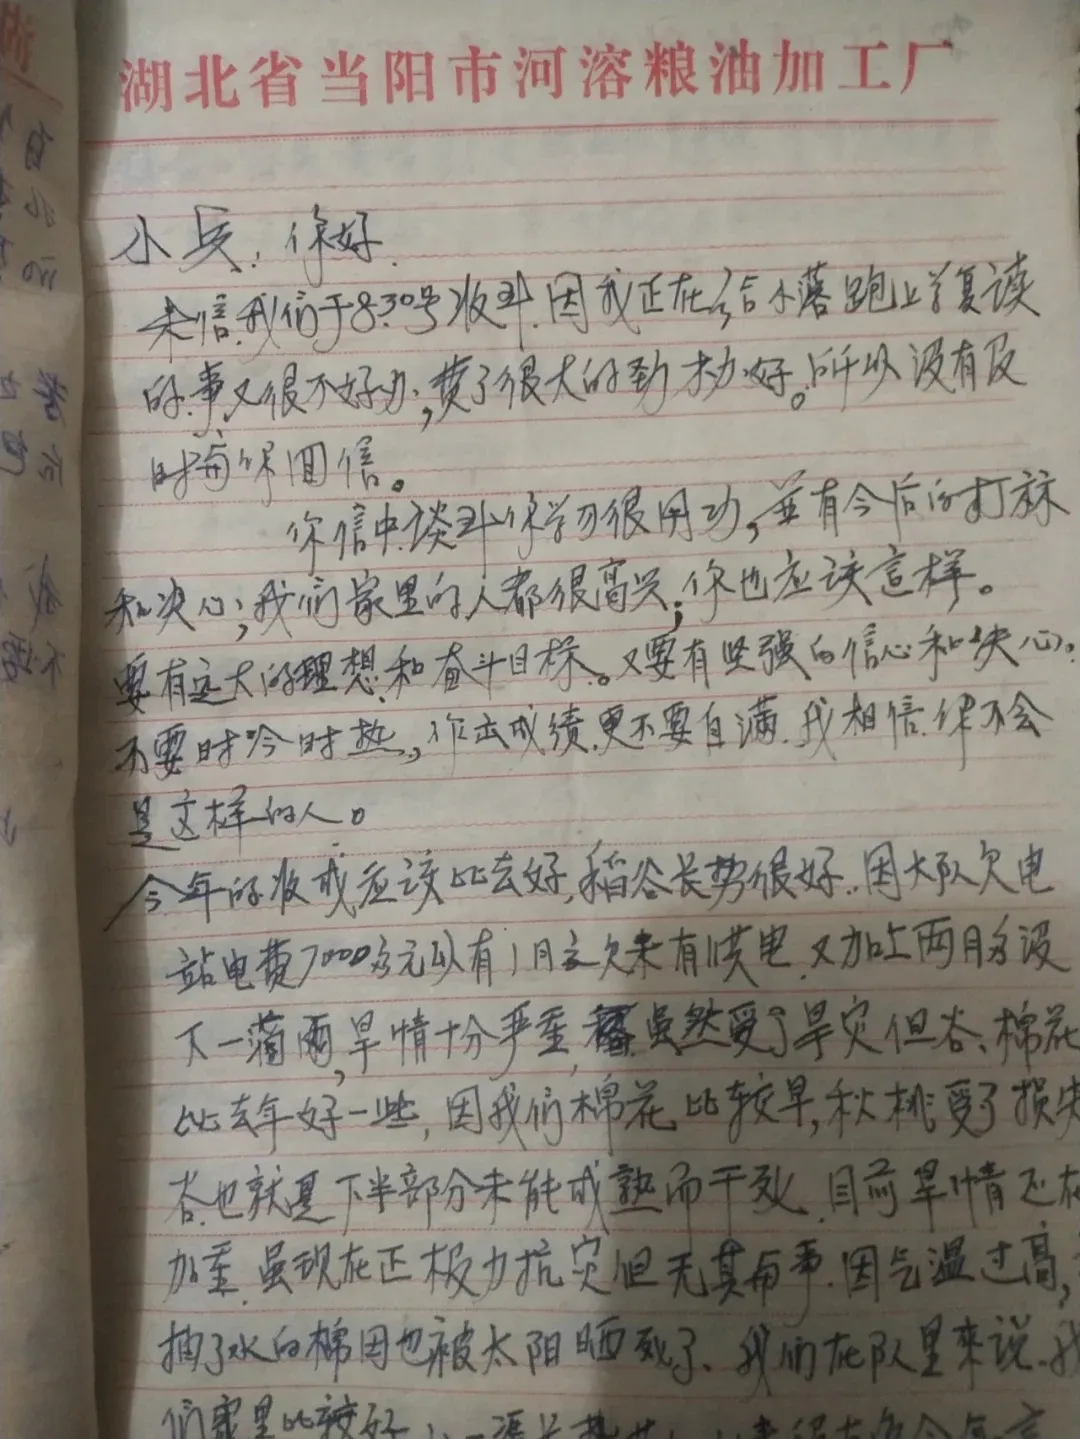 湖北省当阳市河溶粮油加工厂
小兵:你好.
来信.我们于8.30号收到.因我正在给小蓉跑上学复读
的事.又很不好办,费了很大的劲才办好。所以没有及
时与你回信。
你信中谈到你学习很用功,並有今后的打祘
和决心,我们家里的人都很高兴.你也应该这样。
要有远大的理想和奋斗目标。又要有坚强的信心和决心。
不要时冷时热,作出成绩.更不要自满.我相信你不会
是这样的人。
今年的收成应该比去好,稻谷长势很好.因大队欠电
站电费7000多元以有1月之久未有供电.又加上两月多没
下一滴雨,旱情十分严重,虽然受了旱灾但谷、棉花
比去年好一些,因我们棉花比较早,秋桃受了损失
谷也就是下半部分未能成熟而干死.目前旱情还在
加重.虽现在正极力抗灾但无其而事.因气温过高,
抽了水的棉田也被太阳晒死了、我们在队里来说.我
们家里比较好